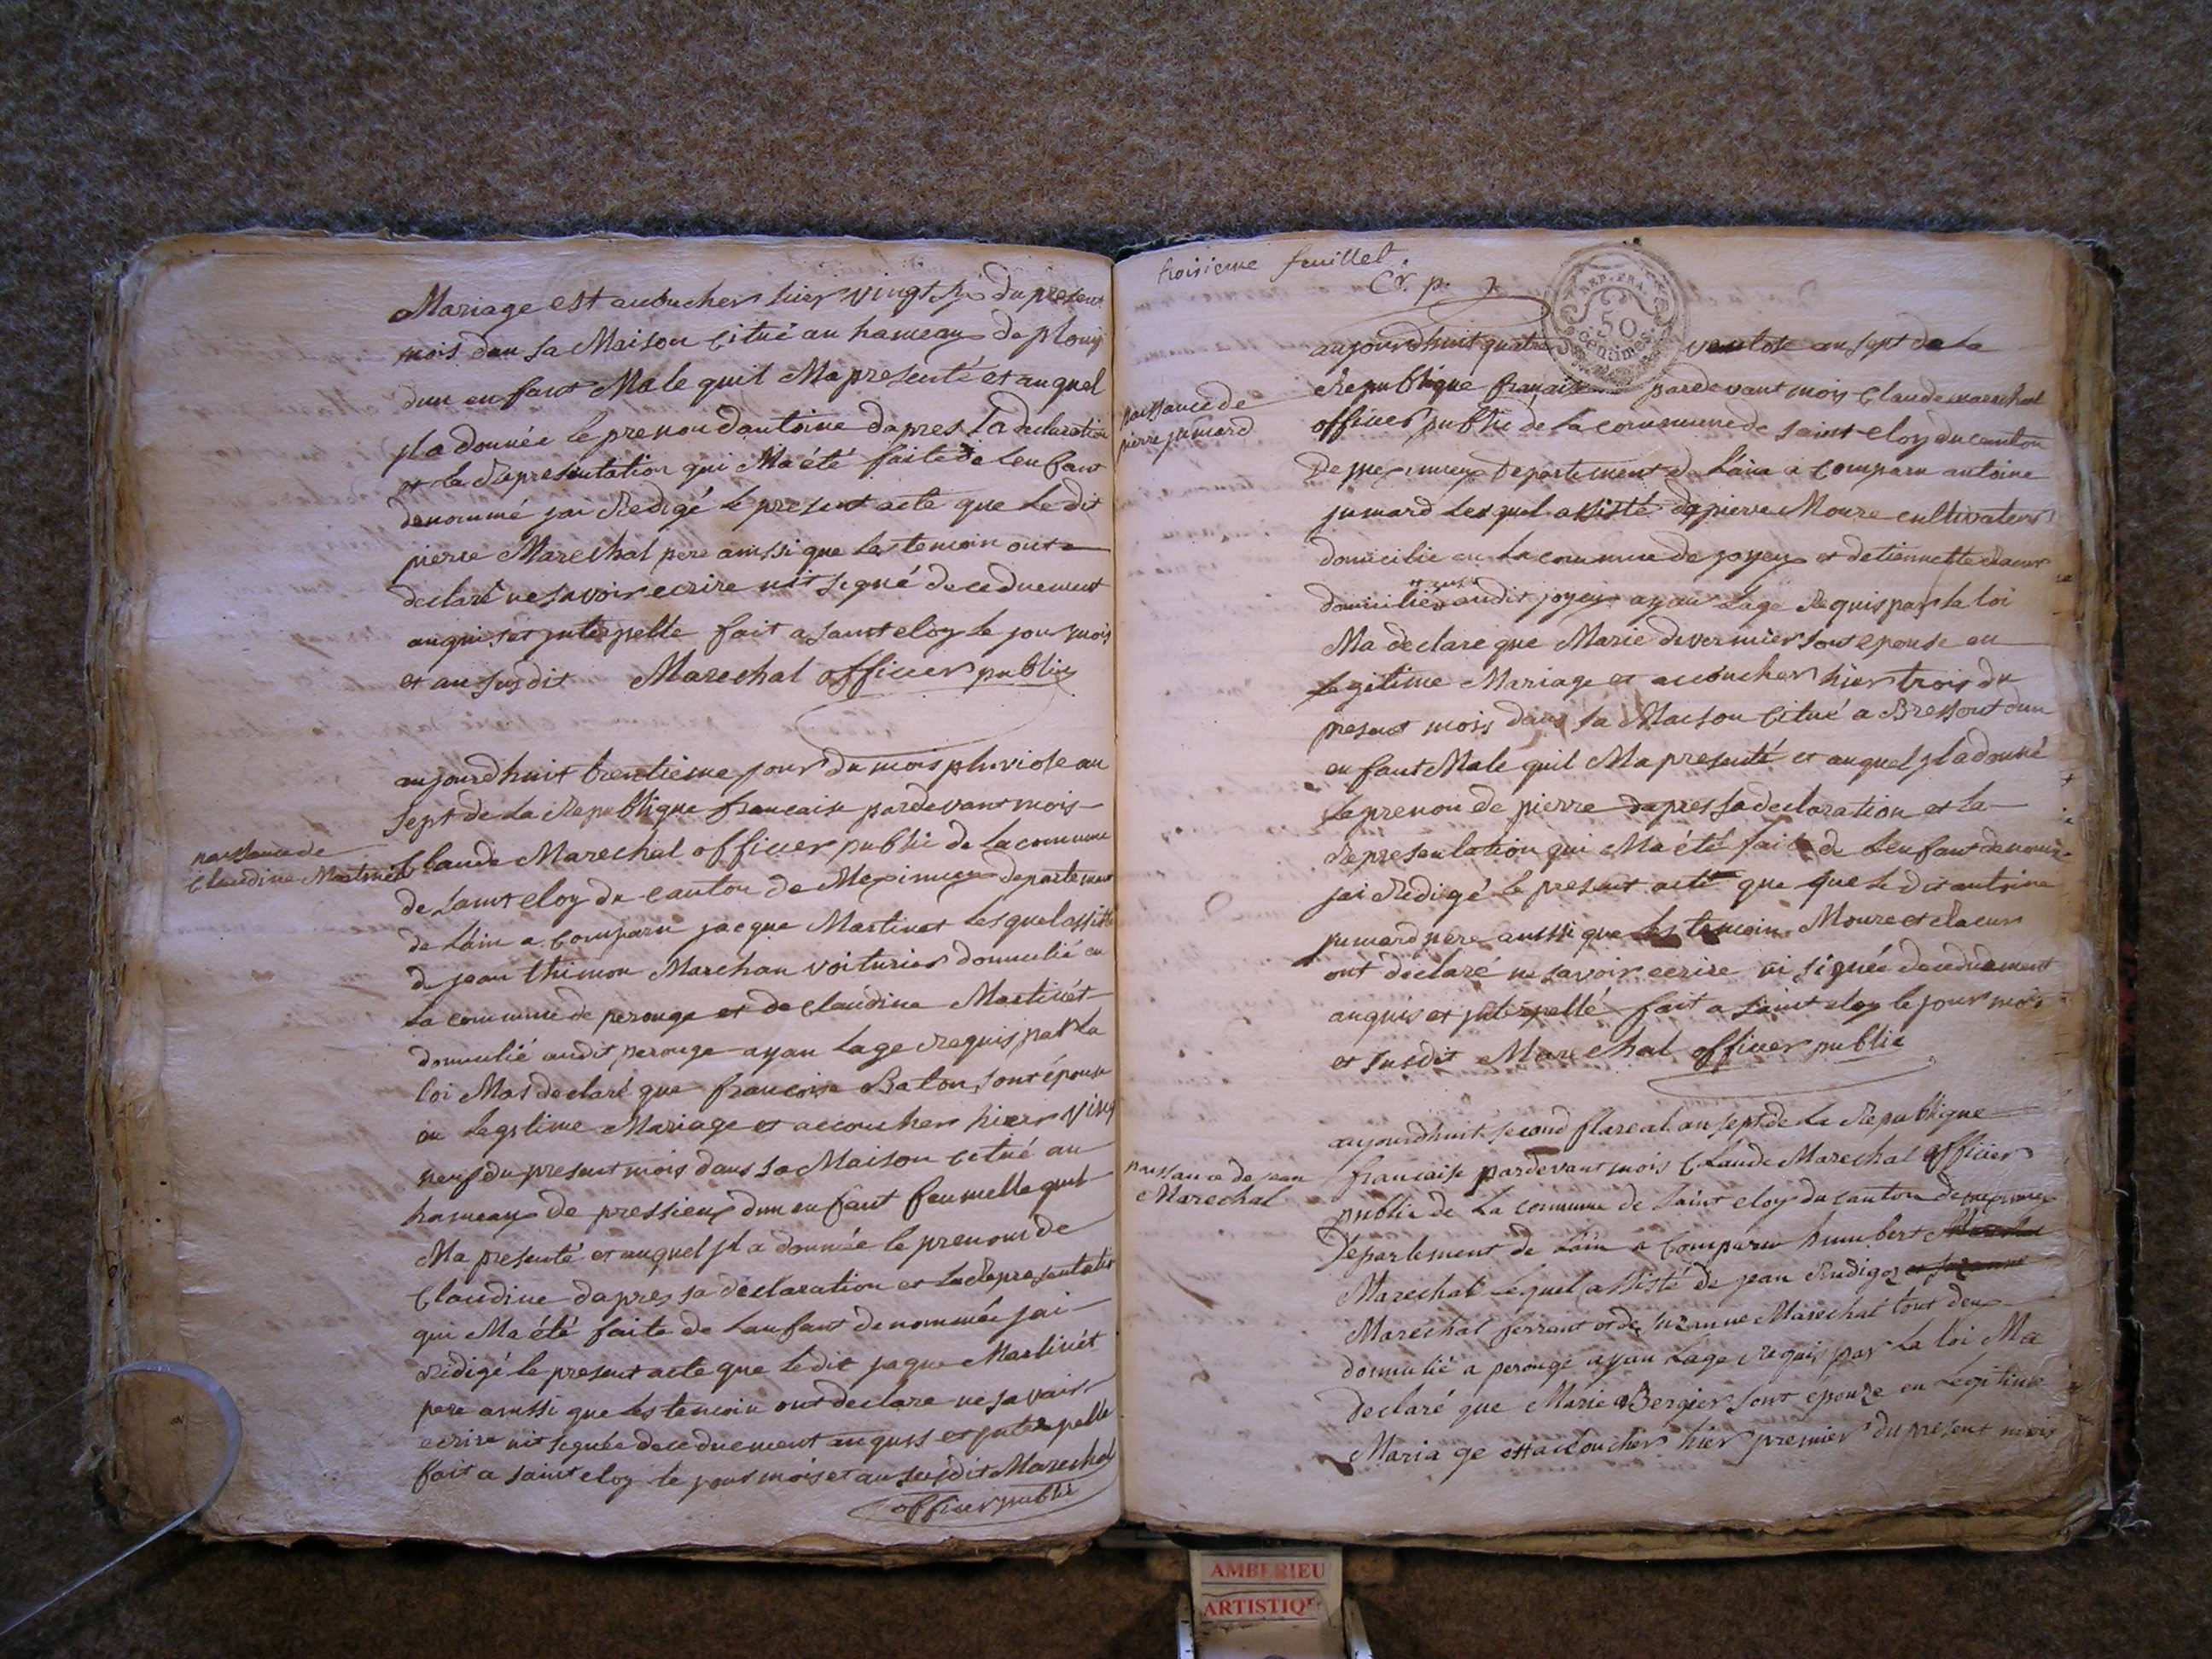 Mariage est acoucher hier vingt six du present
mois dan sa Maison citué au hameau de plouy
dun enfant Male quil Ma presenté et auquel
jl a donnée le prenon dantoine dapres La declaration
et La Representation qui Ma été faite de Lenfant
denommé jai Redigé le present acte que Le dit
pierre Marechal pere ainssi que Les temoin ont
declaré ne savoir ecrire nit signé de ceduement
anquis et jnterpelle fait a saint eloy le jour mois
et an susdit Marechal officier public
aujourdhuit trentieme jour du mois pluviose an
sept de La Republique francaise pardevant mois
naissance de
Claudine Martinet
Claude Marechal officier public de La commune
de saint eloy du canton de Meximieux departement
de Lain a Comparu jacque Martinet Lesquel assisté
de jean thimon Marchan voiturier domicilié en
La commune de perouge et de Claudine Martinet
domicilié audit perouge ayan Lage Requis par La
loi Mas declaré que francoise Baton sont épouse
en Legitime Mariage et accoucher hier ving
neuf du present mois dans sa Maison citué au
hameau de pressieu dun enfant feumelle quil
Ma presenté et auquel jl a donnée le prenom de
Claudine dapres sa declaration et La Representation
qui Ma été faite de Lanfant denommée jai
Redigé le present acte que Ledit jaque Martinet
pere ainssi que Les temoin ont declare ne savair
ecrire nit signée de ceduement anquis et jnterpelle
fait a saint eloy le jour mois et an susdit Marechal
officier public
troisieme feuillet
REP. FRA.
50
centimes.
aujourdhuit quatre ventose an sept de La
naissance de
pierre jumard
Republique francaise pardevant mois Claude marechal
officier public de La commune de saint eloy du canton
de meximieux Departement de Lain a Comparu antoine
jumard Lesquel assisté de pierre Moure cultivateur
domicilié en La commune de joyeux et detiennette
domiciliés audit joyeux ayan Lage Requis par La loi
Ma declare que Marie devernier sont epouse en
Legitime Mariage et accoucher hier trois du
present mois dans sa Maison Citué a Bressout dun
enfant Male quil Ma presenté et auquel jl a donné
Le prenon de pierre dapres sa declaration et La
Representation qui Ma été faite de Lenfant denomé
jai Redigé Le present acte que que Le dit antoine
jumard pere aussi que Les temoin Moure et
ont declaré ne savoir ecrire ni signée de ceduement
anquis et jnterpellé fait a saint eloy le jour mois
et susdit Marechal officier public
aujourdhuit second flareal an sept de La Republique
naissance de jean
Marechal
francaise pardevant mois Claude Marechal officier
public de La commune de saint eloy du canton de meximieux
Departement de Lain a Comparu humbert
Marechal Lequel assisté de jean Rudigoz et suzanne
Marechal ferrant et de suzanne Marechal tout deux
domicilié a perouge ayan Lage Requis par La loi Ma
declaré que Marie Bergier sont épouze en Legitime
Mariage est accoucher hier premier du present mois
AMBERIEU
ARTISTIQUE